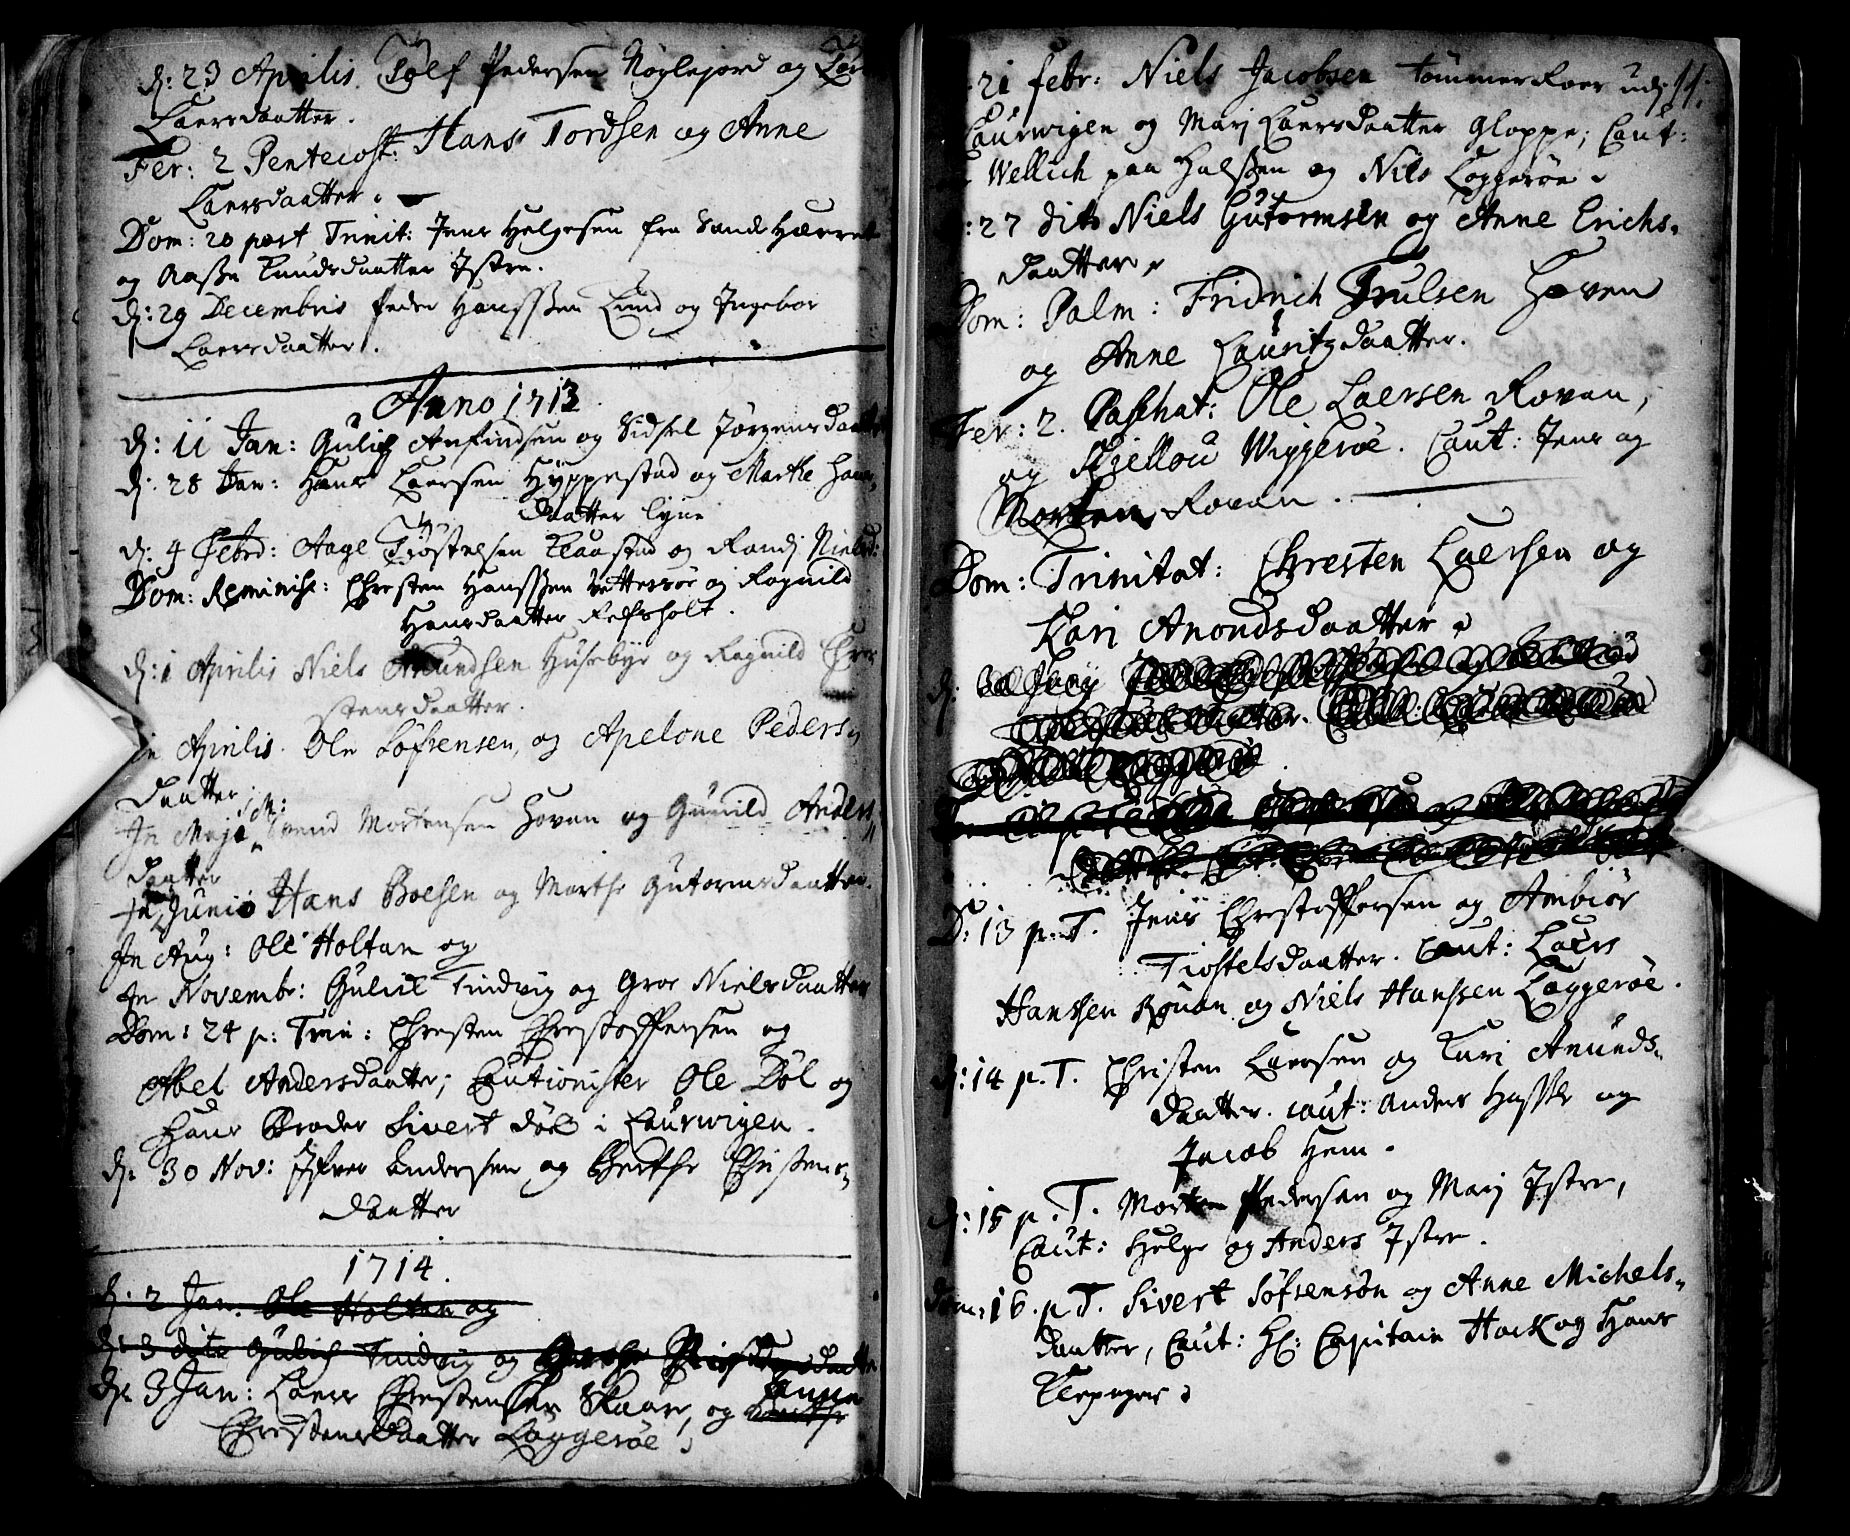 d: 23 Aprilis. Tolf Pedersen Nøglejord og
Laersdaatter.
Fer: 2 Pentecost: Hans Tordsen og Anne
Laersdaatter.
Dom: 20 post Trinit: Jens Helgesen fra Sande Herret
og Aasse Knudsdaatter Istre.
d: 29 Decembris Peder Hanssen Lund og Ingebor
Laersdaatter.
Anno 1713
d: 11 Jan: Gulich Anfindsen og Sidsel Jørgensdaatter
d: 28 Jan: Hans Laersen Hyppestad og Marthe Hans
daatter Lyne
d: 4 Febr: Aage Tiøstelsen Klaastad og Randj Nielsd:
Dom: Reminisc: Chresten Hanssen Vettersøe og Ragnild
Hansdaatter Refsholt.
d: 1 Aprilis Niels Amundsen Husebye og Ragnild Chre
stensdaatter.
in Aprilis. Ole Søfrensen, og Apelone Peders
daatter
Jn Majo Svend Mortensen Hovan og Gunild Anders
daatter
Jn Junio Hans Boesen og Marthe Gutormsdaatter.
Jn Aug: Ole Holtan og
Jn Novembr: Gulich Tindvig og Groe Nielsdaatter
Dom: 24 p: Trin: Chresten Christoffersen og
Abel Andersdaatter; Cautionister Ole Døl og
Hans Broder Sivert Døl i Laurwigen.
d. 30 Nov: Iffver Andersen og Berthe Christens
daatter
1714.
d. 2 Jan. Ole Holtan og
d. 3 dito Gulich Tindvig og
d. 3 Jan: Laers Chrestensen Skaar, og Anne
Christensdaatter Laggerøe
21 febr: Niels Jacobsen tømmer udj 11.
Laurwigen og Marj Laersdaatter Gloppe; Caut:
Wellich paa Halssen og Nils Loggerøe
: 27 dito Niels Gutormsen og Anne Erichs
daatter
Dom: Palm: Fridrich Trulsen Hoven
og Anne Lauritzdaatter.
Fer: 2. Paschat: Ole Laersen Rovan,
og Kiellou Wiggerøe. Caut: Jens og
Morten Rovan.
Dom: Trinitat: Chresten Laersen og
Kari Anondsdaatter
d:
D: 13 p. T. Jens Christoffersen og Anbiør
Tiostelsdaatter. Caut: Laers
Hanssen Rouan og Niels Hanssen Laggerøe.
D: 14 p. T. Christen Laersen og Kari Anunds
daatter. Caut: Anders og
Jacob Hem.
D: 15 p. T. Morten Pedersen og Marj Istre,
Caut: Helge og Anders Istre.
Dom: 16. p T. Sivert Søfrensøn og Anne Michels
daatter, Caut: Hr: Capitain Hack og Hans